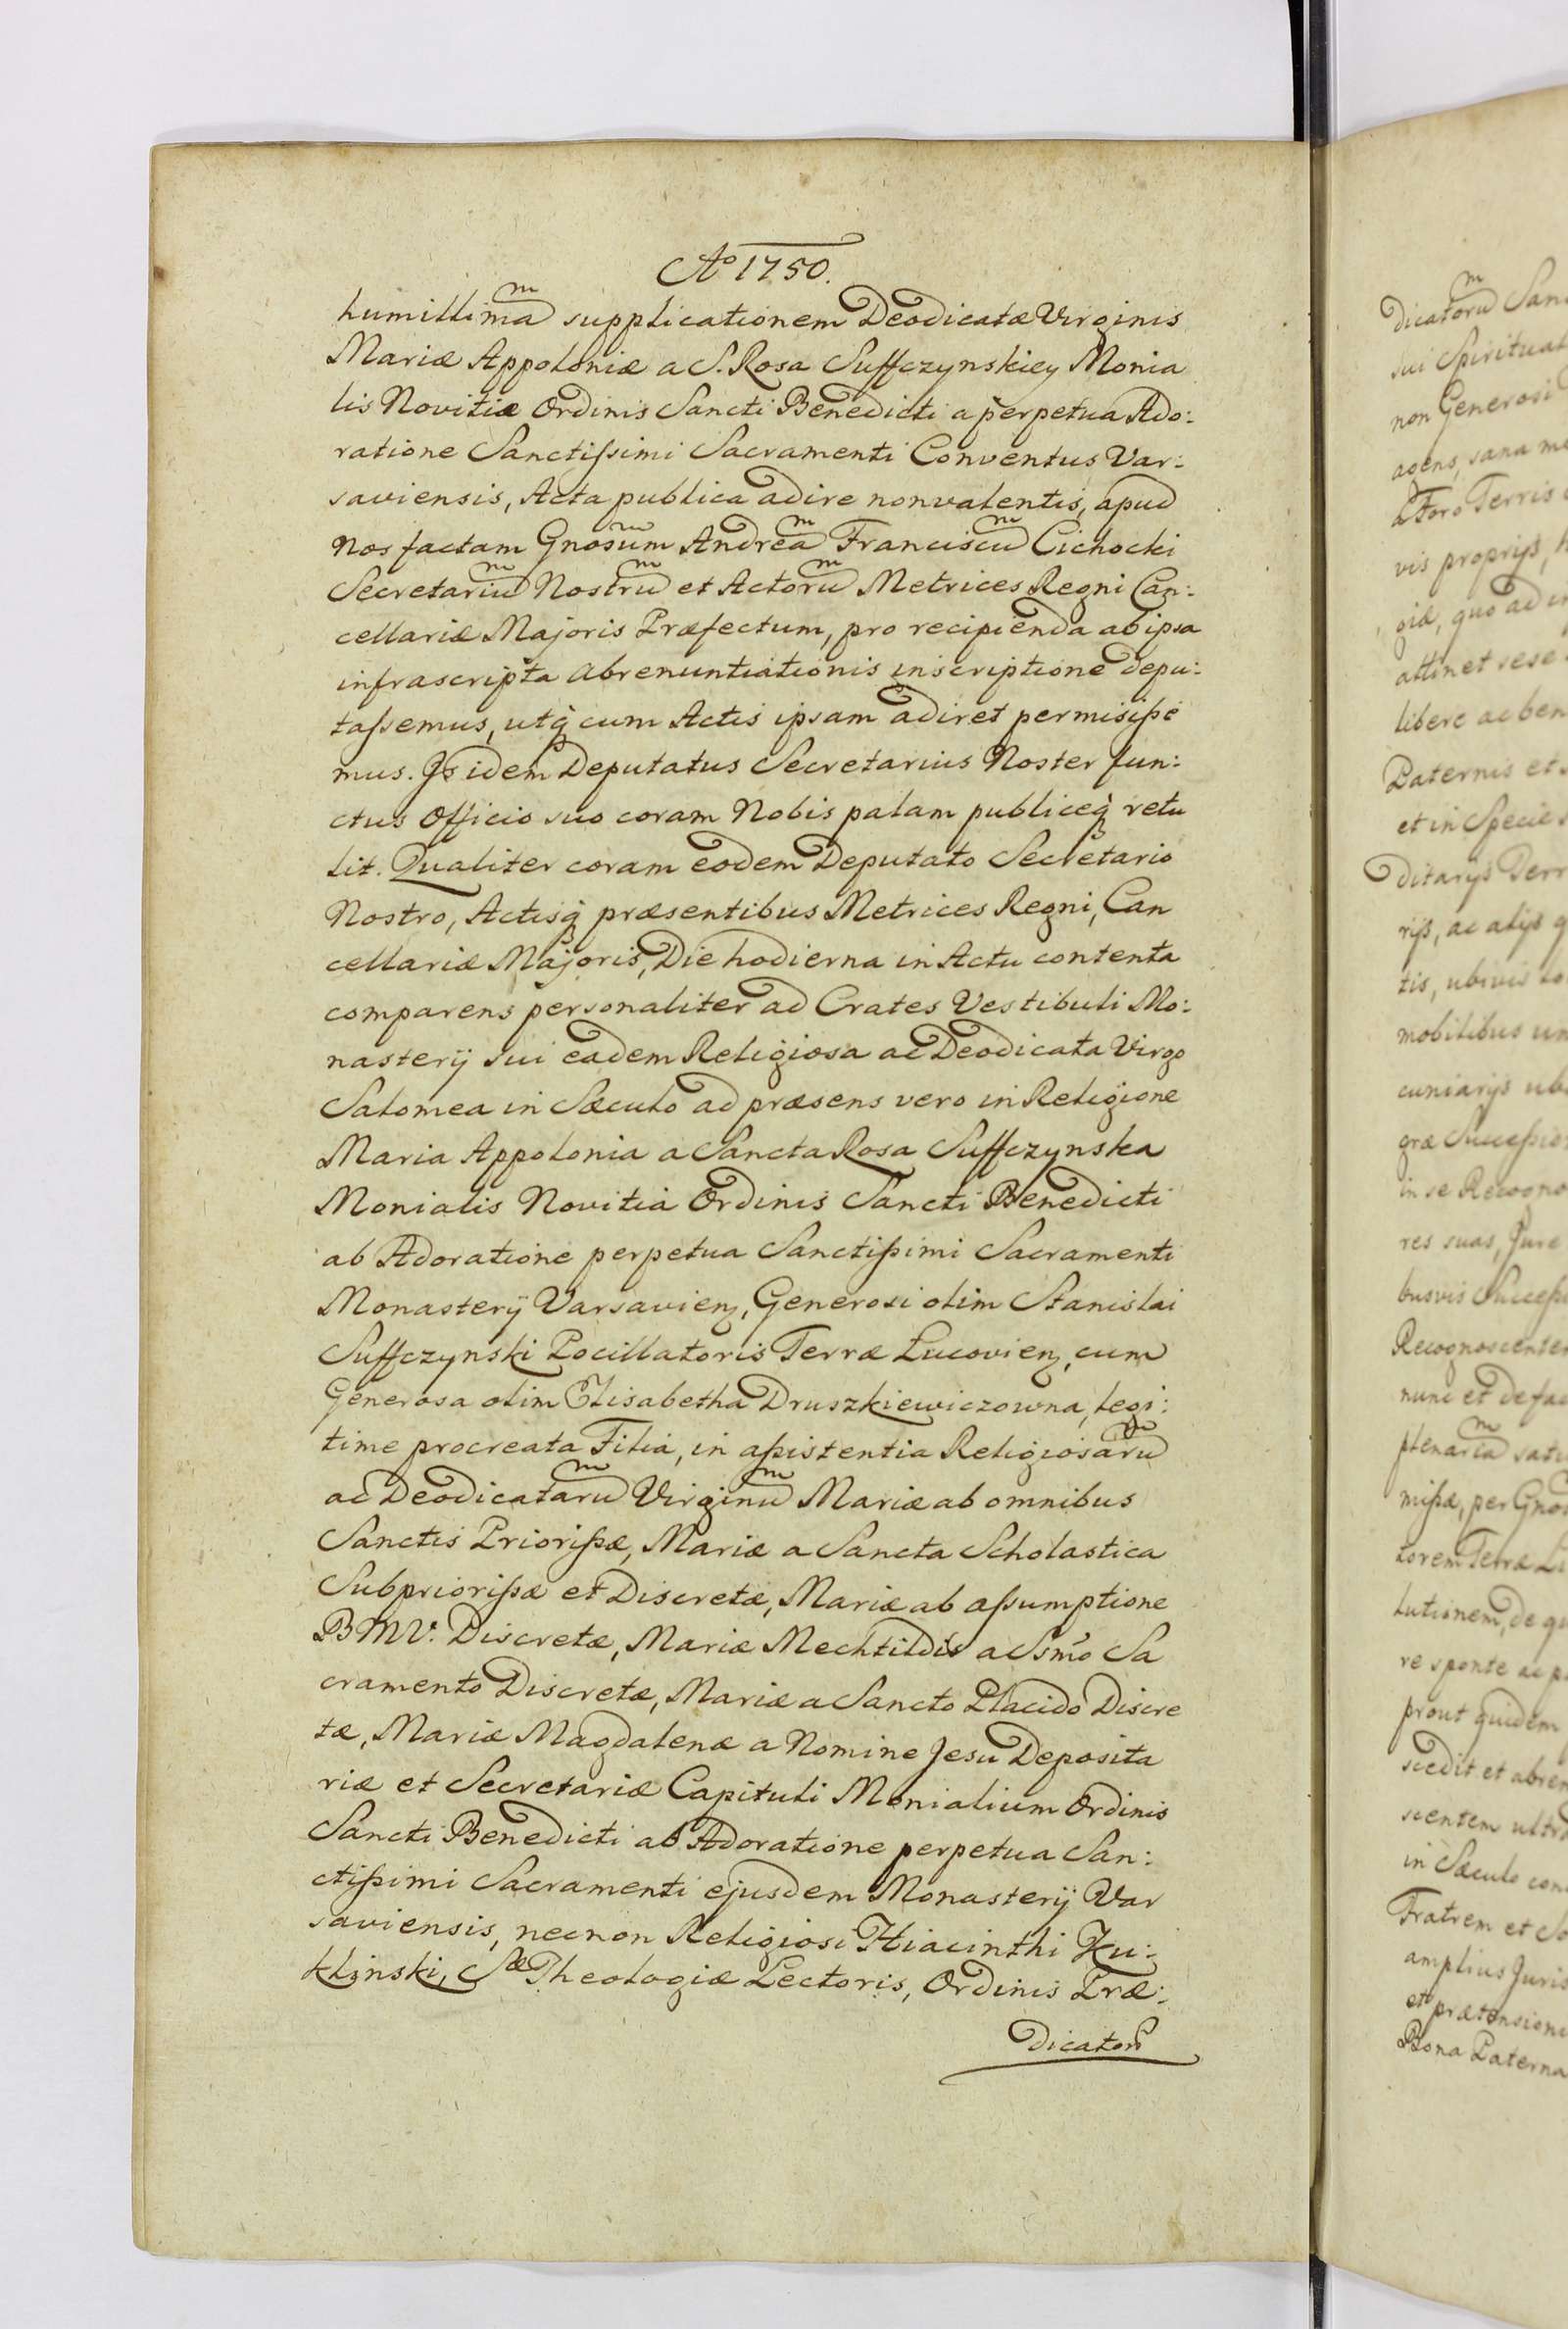 Aº 1750.
humillimam supplicationem Deodicatæ Virginis
Mariæ Appoloniæ a S. Rosa Suffczynskiey Monia
lis Novitiæ Ordinis Sancti Benedicti a perpetua Ado:
ratione Sanctissimi Sacramenti Conventus Var:
saviensis, Acta publica adire non valentis, apud
Nos factam Gnosum Andream Franciscum Cichocki
Secretarium Nostrum et Actorum Metrices Regni Can:
cellariæ Majoris Præfectum, pro recipienda ab ipsa
infrascripta abrenuntiationis inscriptione depu:
tassemus, utq cum Actis ipsam adiret permisisse
mus. Is idem Deputatus Secretarius Noster fun:
ctus Officio suo coram Nobis palam publiceq retu
lit. Qualiter coram eodem Deputato Secretario
Nostro, Actisq præsentibus Metrices Regni, Can
cellariæ Majoris, Die hodierna in Actu contenta
comparens personaliter ad Crates Vestibuli Mo:
nasterij sui eadem Religiosa ac Deodicata Virgo
Salomea in Sæculo ad præsens vero in Religione
Maria Appolonia a Sancta Rosa Suffczynska
Monialis Novitia Ordinis Sancti Benedicti
ab Adoratione perpetua Sanctissimi Sacramenti
Monasterij Varsavien, Generosi olim Stanislai
Suffczynski Pocillatoris Terræ Lucovien, cum
Generosa olim Elisabetha Druszkiewiczowna, legi:
time procreata Filia, in assistentia Religiosarum
ac Deodicatarum Virginum Mariæ ab omnibus
Sanctis Priorissæ, Mariæ a Sancta Scholastica
Subpriorissæ et Discretæ, Mariæ ab assumptione
BMV. Discretæ, Mariæ Mechtildis a Ssmo Sa
cramento Discretæ, Mariæ a Sancto Placido Discre
tæ, Mariæ Magdalenæ a Nomine Jesu Deposita
riæ et Secretariæ Capituli Monialium Ordinis
Sancti Benedicti ab Adoratione perpetua San:
ctissimi Sacramenti ejusdem Monasterij Var
saviensis, necnon Religiosi Hiacinthi Ku:
klinski, Sæ Theologiæ Lectoris, Ordinis Præ:
dicatorum
dicatorum
sui Spiritual
non Generosi
agens, sana
a Foro Terris
vis proprijs,
quo ad
attinet sese
libere ac ben
Paternis et
et in Specie
ditarijs Terr
ac alijs
tis, ubivis
mobilibus
cuniarijs
græ Successio
in se Recogno
res suas, Jure
busvis Success
Recognoscente
nunc et de fac
plenariam
missæ, per Gnos
torem Terræ
lutionem, de
re sponte ac
prout quidem
scedit et abren
scentem ultro
in Sæculo
Fratrem et
amplius Juris
et prætensioni
Bona Paterna